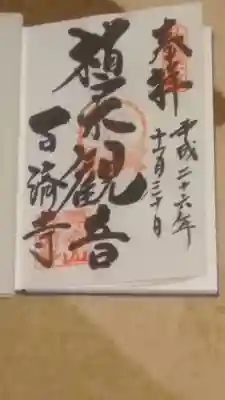 奉拝
平成二十六年
十一月三十日
植木観音
百済寺